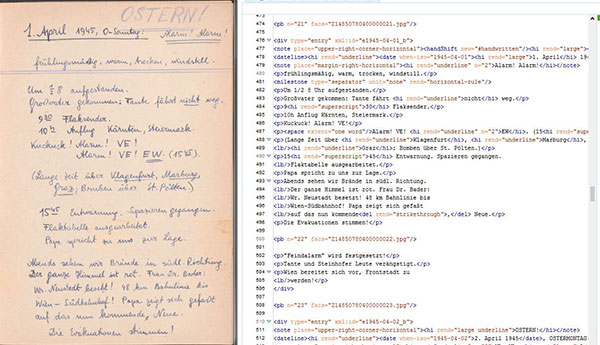 OSTERN!
1. April 1945, O-Sonntag: Alarm! Alarm!
frühlingsmäßig, warm, trocken, windstill.
Um ½ 8 aufgestanden.
Großvater gekommen: Tante fährt nicht weg.
9 30 Flaksender.
10 h Anflug Kärnten, Steiermark.
Kuckuck! Alarm! VE!
Alarm! VE! EW. (15 45).
(Lange Zeit über Klagenfurt, Marburg,
Graz; Bomben über St. Pölten.)
15 45 Entwarnung. Spazieren gegangen.
Flaktabelle ausgearbeitet.
Papa spricht zu uns zur Lage.
Abends sehen wir Brände in südl. Richtung.
Der ganze Himmel ist rot. Frau Dr. Bader:
Wr. Neustadt besetzt! 48 km Bahnlinie bis
Wien-Südbahnhof! Papa zeigt sich gefaßt
auf das nun kommende, Neue.
Die Evakuationen stimmen!
473
474 <pb n="21" facs="Z14850780400000021.jpg"/>
475
476 <div type="entry" xml:id="e1945-04-01_b">
477 <note place="upper-right-corner-horizontal"><handShift new="#handwritten"/><hi rend="large">
478 <dateline><hi rend="underline"><date when-iso="1945-04-01"><hi rend="large">1. April</hi> 19
479 <note place="margin-right-horizontal"><hi rend="underline" n="2">Alarm! Alarm!</hi></note>
480 <p>frühlingsmäßig, warm, trocken, windstill.</p>
481 <milestone type="separator" unit="none" rend="horizontal-rule"/>
482 <p>Um 1/2 8 Uhr aufgestanden.</p>
483 <p>Großvater gekommen: Tante fährt <hi rend="underline">nicht</hi> weg.</p>
484 <p>9<hi rend="superscript">30</hi> Flaksender.</p>
485 <p>10h Anflug Kärnten, Steiermark.</p>
486 <p>Kuckuck! Alarm! VE!</p>
487 <p><space extent="one word"/>Alarm! VE! <hi rend="underline" n="2">EW</hi>. (15<hi rend="sup
488 <p>(Lange Zeit über <hi rend="underline">Klagenfurt</hi>, <hi rend="underline">Marburg</hi>,
489 <lb/><hi rend="underline">Graz</hi>; Bomben über St. Pölten.)</p>
490 <p>15<hi rend="superscript">45</hi> Entwarnung. Spazieren gegangen.
491 <lb/>Flaktabelle ausgearbeitet.</p>
492 <p>Papa spricht zu uns zur Lage.</p>
493 <p>Abends sehen wir Brände in südl. Richtung.
494 <lb/>Der ganze Himmel ist rot. Frau Dr. Bader:
495 <lb/>Wr. Neustadt besetzt! 48 km Bahnlinie bis
496 <lb/>Wien=Südbahnhof! Papa zeigt sich gefaßt
497 <lb/>auf das nun kommende<del rend="strikethrough">,</del> Neue.</p>
498 <p>Die Evakuationen stimmen!</p>
499
500 <pb n="22" facs="Z14850780400000022.jpg"/>
501
502 <p>"Feindalarm" wird festgesetzt!</p>
503 <p>Tante und Steinhofer Leute verängstigt.
504 <p>Wien bereitet sich vor, Frontstadt zu
505 <lb/>werden!</p>
506 </div>
507
508 <pb n="23" facs="Z14850780400000023.jpg"/>
509
510 <div type="entry" xml:id="e1945-04-02_b">
511 <note place="upper-right-corner-horizontal"><hi rend="large underline">OSTERN!</hi></note>
512 <dateline><hi rend="underline"><date when-iso="1945-04-02">2. April 1945</date>, OSTERMONTAG